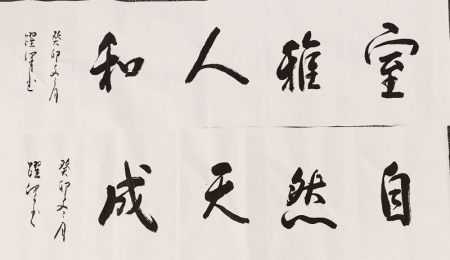 室雅人和
癸卯冬月
自然天成
癸卯冬月